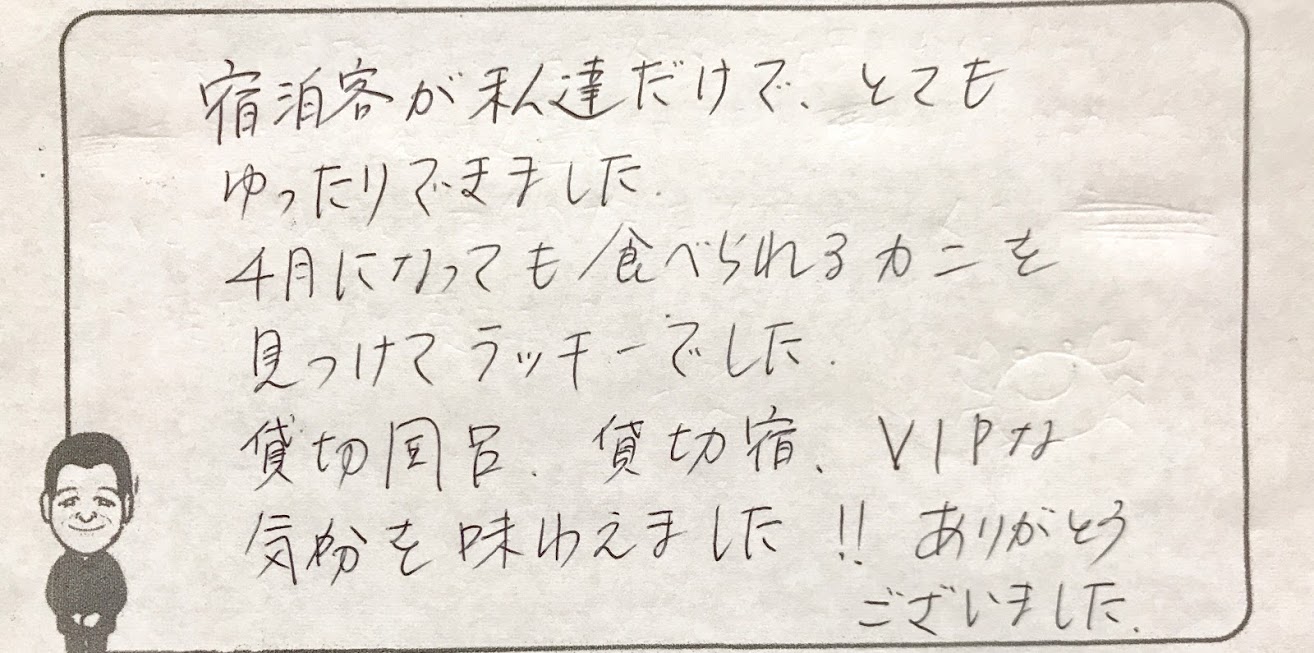 宿泊客が私達だけで、とても
ゆったりできました.
4月になっても食べられるカニを
見つけてラッキーでした.
貸切風呂、貸切宿、VIPな
気分を味わえました!! ありがとう
ございました.